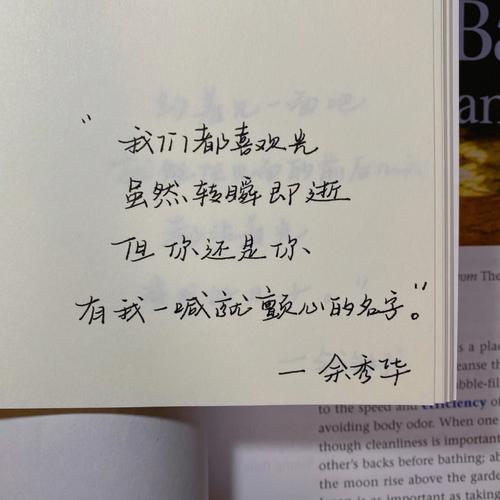 “我们都喜欢光
虽然转瞬即逝
但你还是你、
有我一喊就颤心的名字。”
— 余秀华
Ba
an
om The
s a plac
eanse th
bble-fil
to the speed and efficiency of
avoiding body odor. When one
though cleanliness is important
other's backs before bathing; ab
the moon rise above the garde